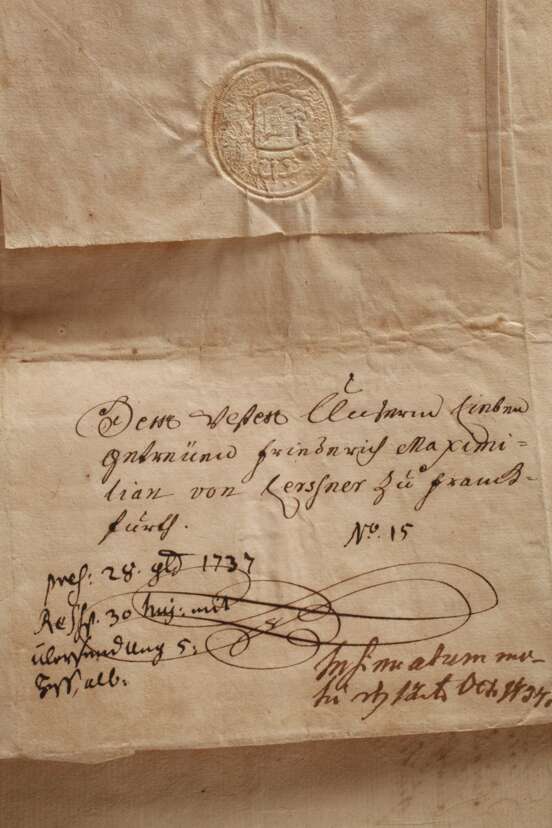 Dem Vesten Unserm Lieben
getreüen Friederich Maximi-
lian von Lersner zu Franck-
furth.
No. 15
pres: 28. 1737
Resp. 30 huj: mit
übersendung 5:
Insinuatum
Oct. 1737.